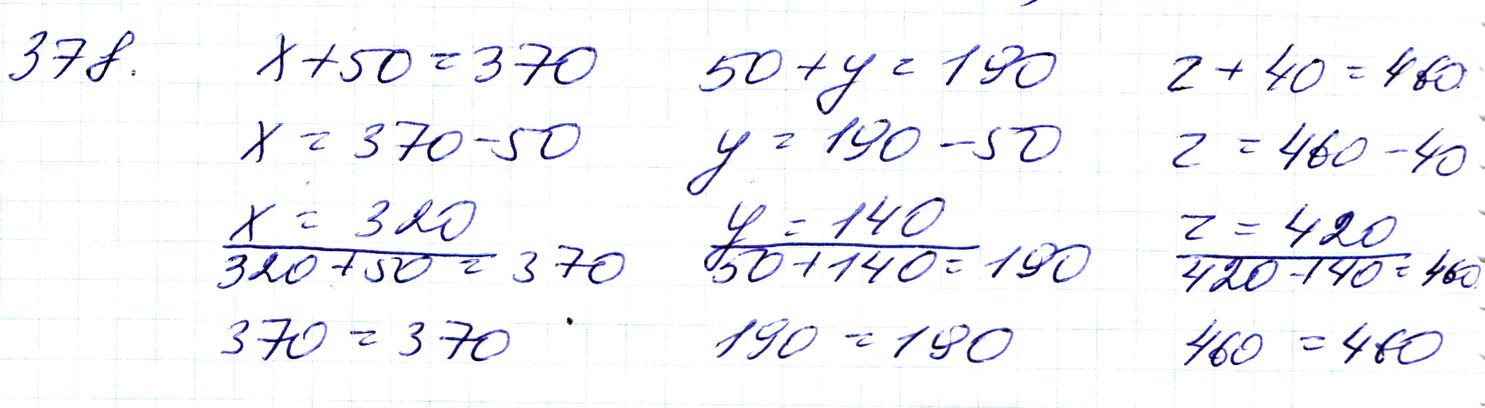 378. x+50=370 50+y=190 z+40=460
x=370-50 y=190-50 z=460-40
x=320 y=140 z=420
320+50=370 50+140=190 420+40=460
370=370 190=190 460=460